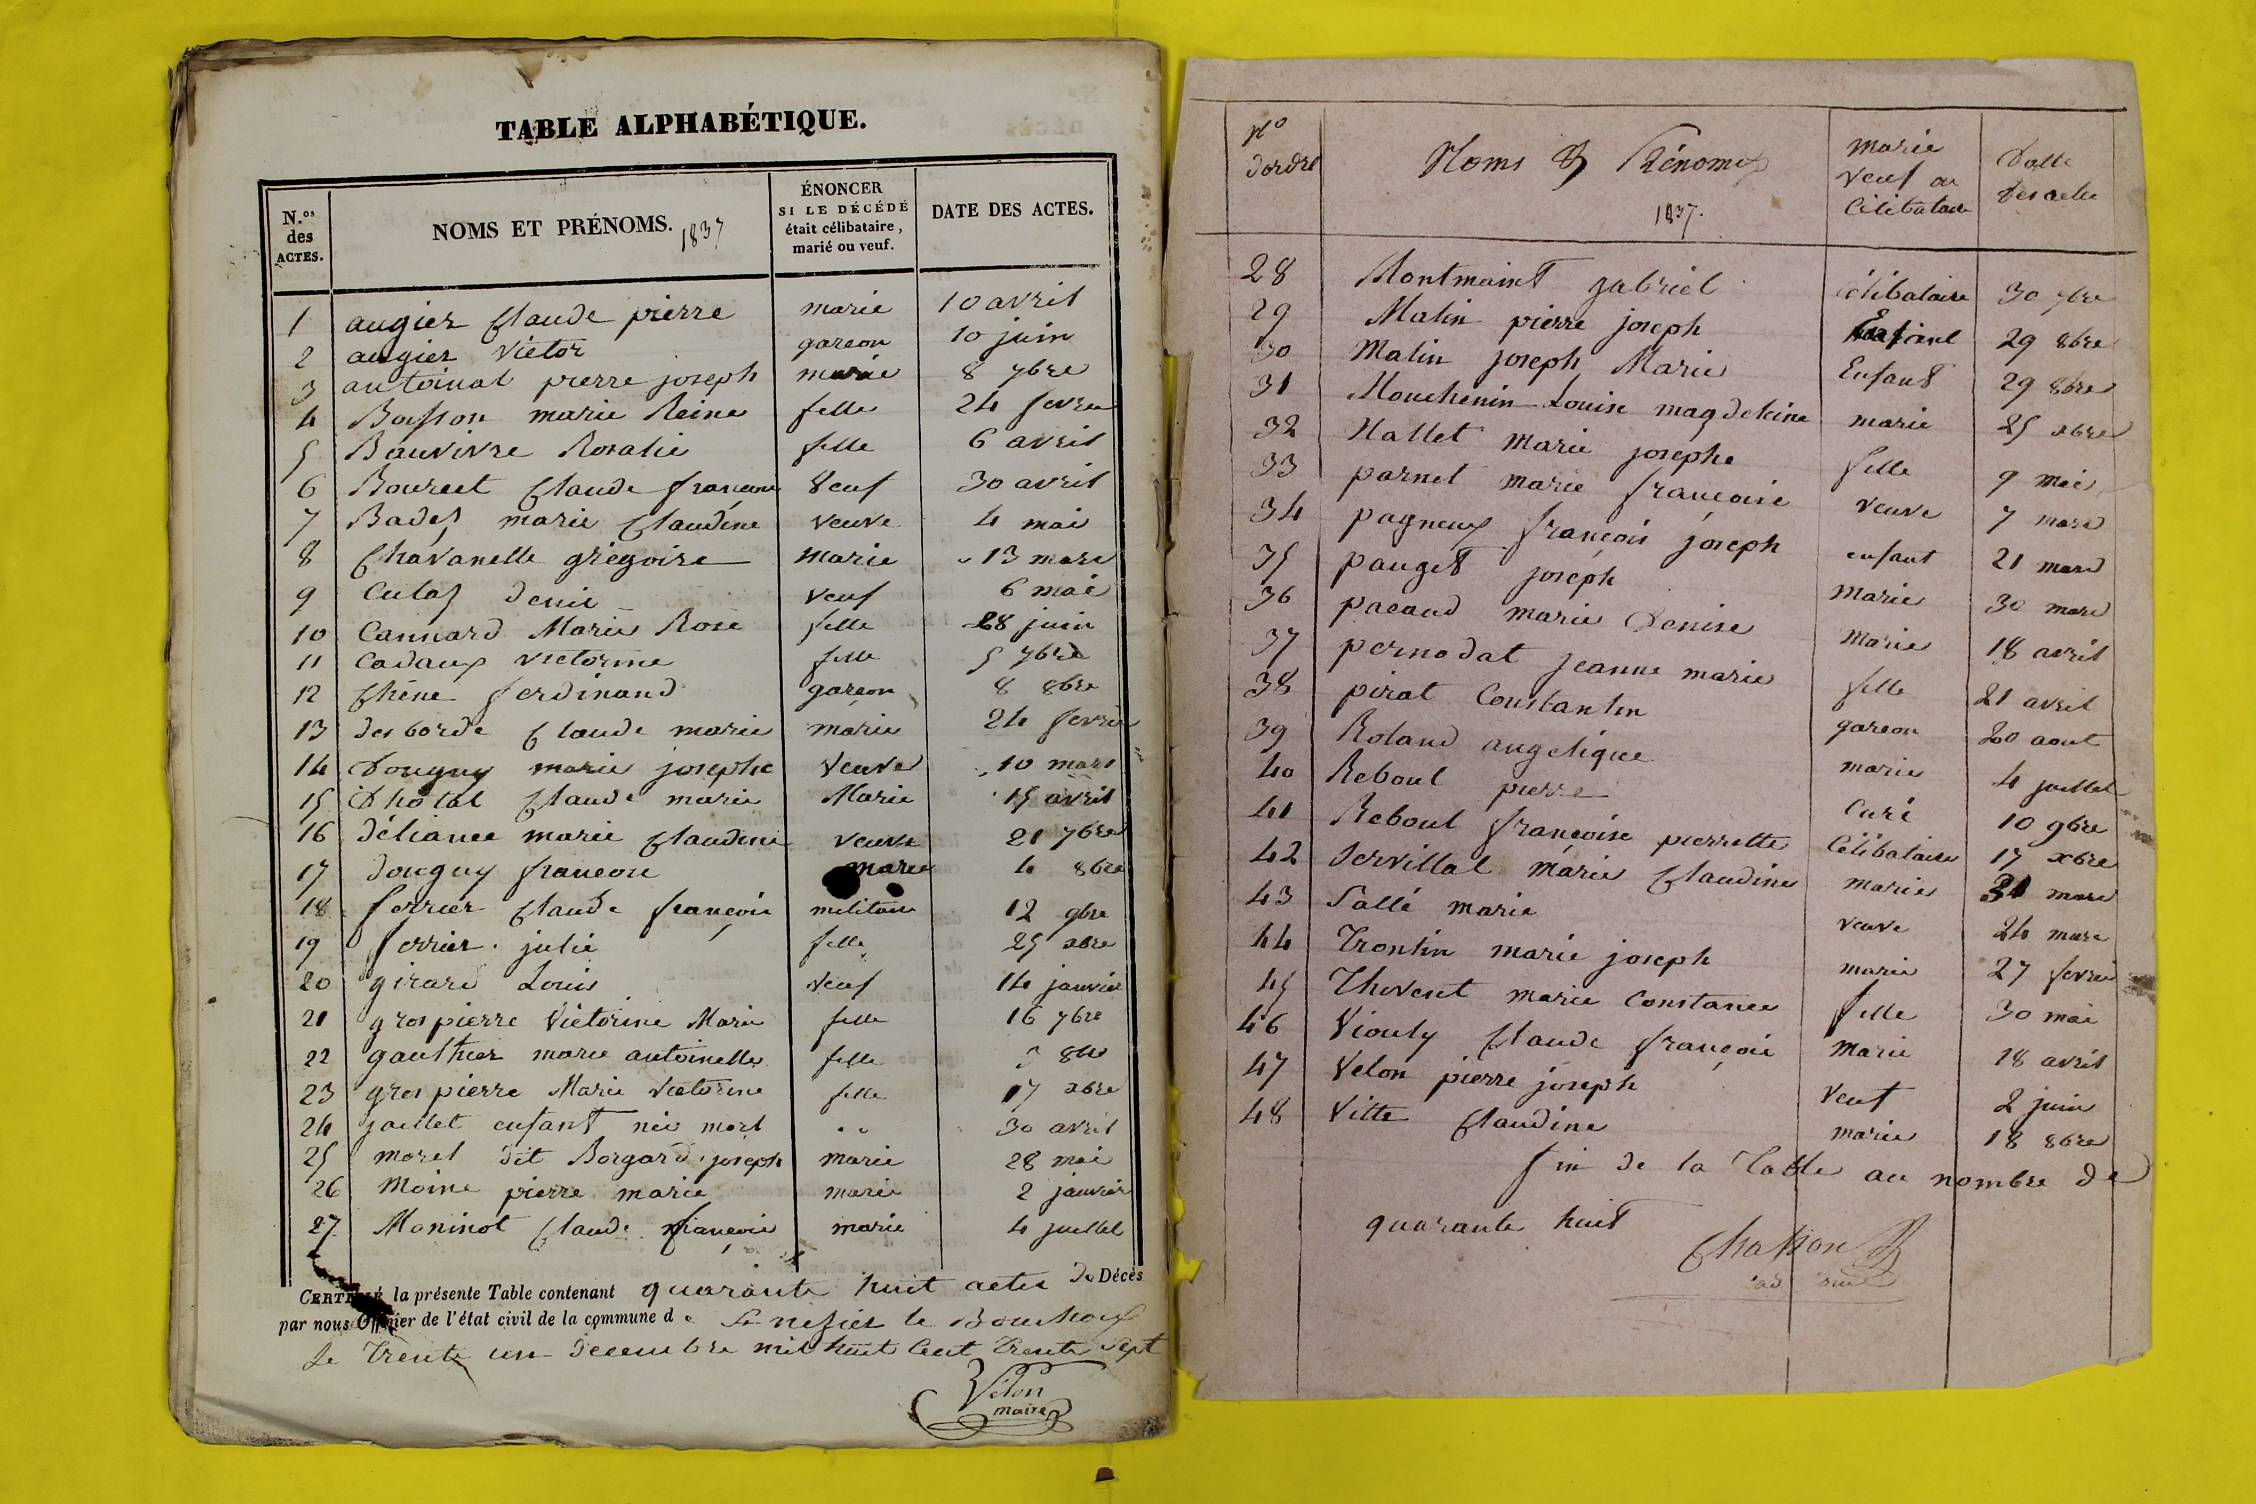 TABLE ALPHABÉTIQUE.
N.os des ACTES.
NOMS ET PRÉNOMS. 1837
ÉNONCER SI LE DÉCÉDÉ était célibataire, marié ou veuf.
DATE DES ACTES.
1 augier Claude pierre marié 10 avril
2 augier victor garcon 10 juin
3 antoinat pierre joseph marié 8 7bre
4 Boisson marie Reine fille 24 fevrier
5 Bauvivre Rosalie fille 6 avril
6 Bourcet Claude françois Veuf 30 avril
7 Badez marie Claudine veuve 4 mai
8 Chavanelle grégoire marié 13 mars
9 Culas denis veuf 6 mai
10 Cannard Marie Rose fille 28 juin
11 Cadaux victorine fille 5 7bre
12 Chêne ferdinand garcon 8 8bre
13 desborde Claude marie marié 24 fevrier
14 Douguy marie josephe Veuve 10 mars
15 Dhotal Claude marie Marié 15 avril
16 déliance marie Claudine veuve 21 7bre
17 douguy francois marié 4 8bre
18 ferrier Claude françois militaire 12 9bre
19 ferrier julie fille 25 xbre
20 girard Louis veuf 14 janvier
21 grospierre Victorine Marie fille 16 7bre
22 gauthier marie antoinette fille 8bre
23 grospierre Marie victorine fille 17 xbre
24 jaillet enfant née mort " " 30 avril
25 morel dit Borgard joseph marié 28 mai
26 Moine pierre marie marié 2 janvier
27 Maninot Claude françois marié 4 juillet
CERTIFIÉ la présente Table contenant quarante huit actes de Décès
par nous Officier de l'état civil de la commune de St nesier le Bouchoux
le Trente un decembre mil huit Cent Trente Sept
Velon
maire
No d'ordre
Noms & Prénoms 1837.
marié Veuf ou Célibataire
Datte des actes
28 Montmaint gabriel célibataire 30 7bre
29 Matin pierre joseph Enfant 29 8bre
30 Matin joseph Marie Enfant 29 8bre
31 Mouchenin Louise magdeleine marié 25 xbre
32 Nallet marie josephe fille 9 mai
33 parnet marie françoise veuve 7 mars
34 pagneux françois joseph enfant 21 mars
35 pauget joseph Marié 30 mars
36 pacaud marie Denise Marié 18 avril
37 pernodat jeanne marie fille 21 avril
38 pirat Constantin garcon 20 aout
39 Roland angelique marié 4 juillet
40 Reboul pierre Curé 10 9bre
41 Reboul françoise pierrette Célibataire 17 xbre
42 Servillat marie Claudine marié 31 mars
43 Sallé marie veuve 24 mars
44 Trontin marie joseph marié 27 fevrier
45 Thevent marie Constance fille 30 mai
46 Viouly Claude françois Marié 18 avril
47 Velon pierre joseph Veuf 2 juin
48 Vitte Claudine marié 18 8bre
fin de la Table au nombre de
quarante huit